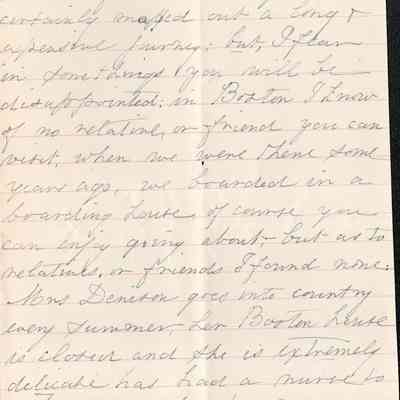 certainly mapped out a long &
expensive journey: but, I fear
in some things you will be
disappointed; in Boston I know
of no relative, or friend you can
visit, when we were there some
years ago, we boarded in a
boarding house, of course you
can enjoy going about,- but as to
relatives, or friends I found none:
Mrs Denison goes into country
every summer, her Boston house
is closed and she is extremely
delicate has had a nurse to